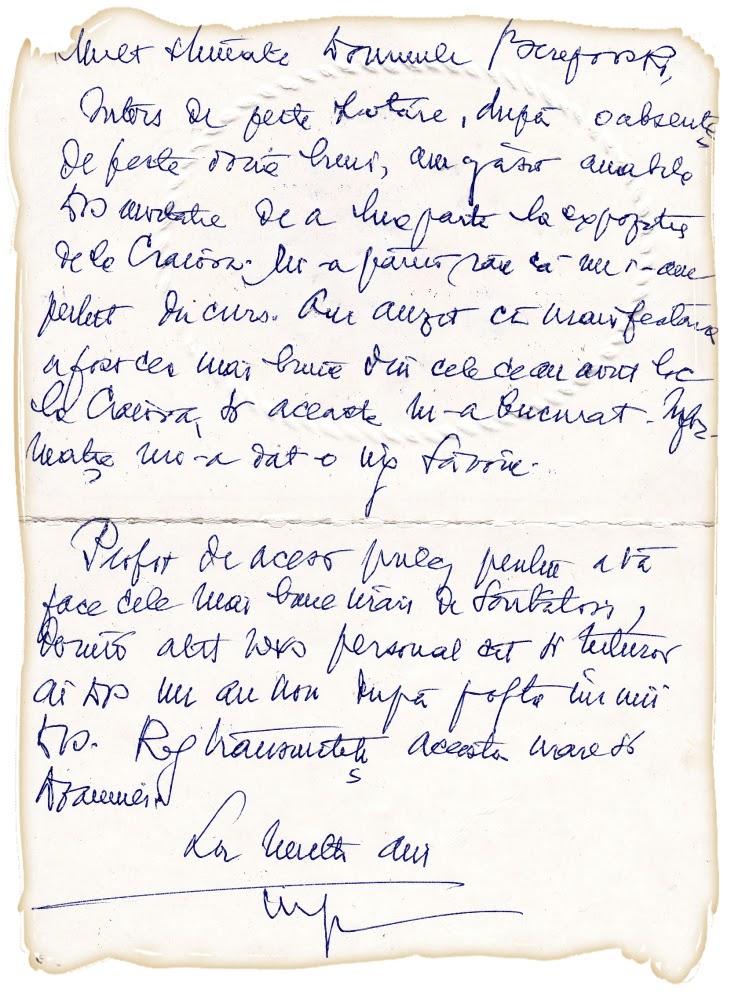 Mult stimate Domnule Berejovski,
Întors de peste hotare, după o absență
de peste două luni, am găsit amabila
Dvs invitație de a lua parte la expoziția
de la Craiova. Mi-a părut rău că nu i-am
dat curs. Am auzit că manifestarea
a fost cea mai bună din cele ce au avut loc
la Craiova, și aceasta m-a bucurat. Infor-
mația mi-a dat-o
Profit de acest prilej pentru a vă
face cele mai bune urări de Sărbători,
dorind atât Dvs personal cât și tuturor
ai Dvs un an nou după pofta inimii
Dvs. Rog transmiteți aceasta urare și
Doamnei.
La mulți ani